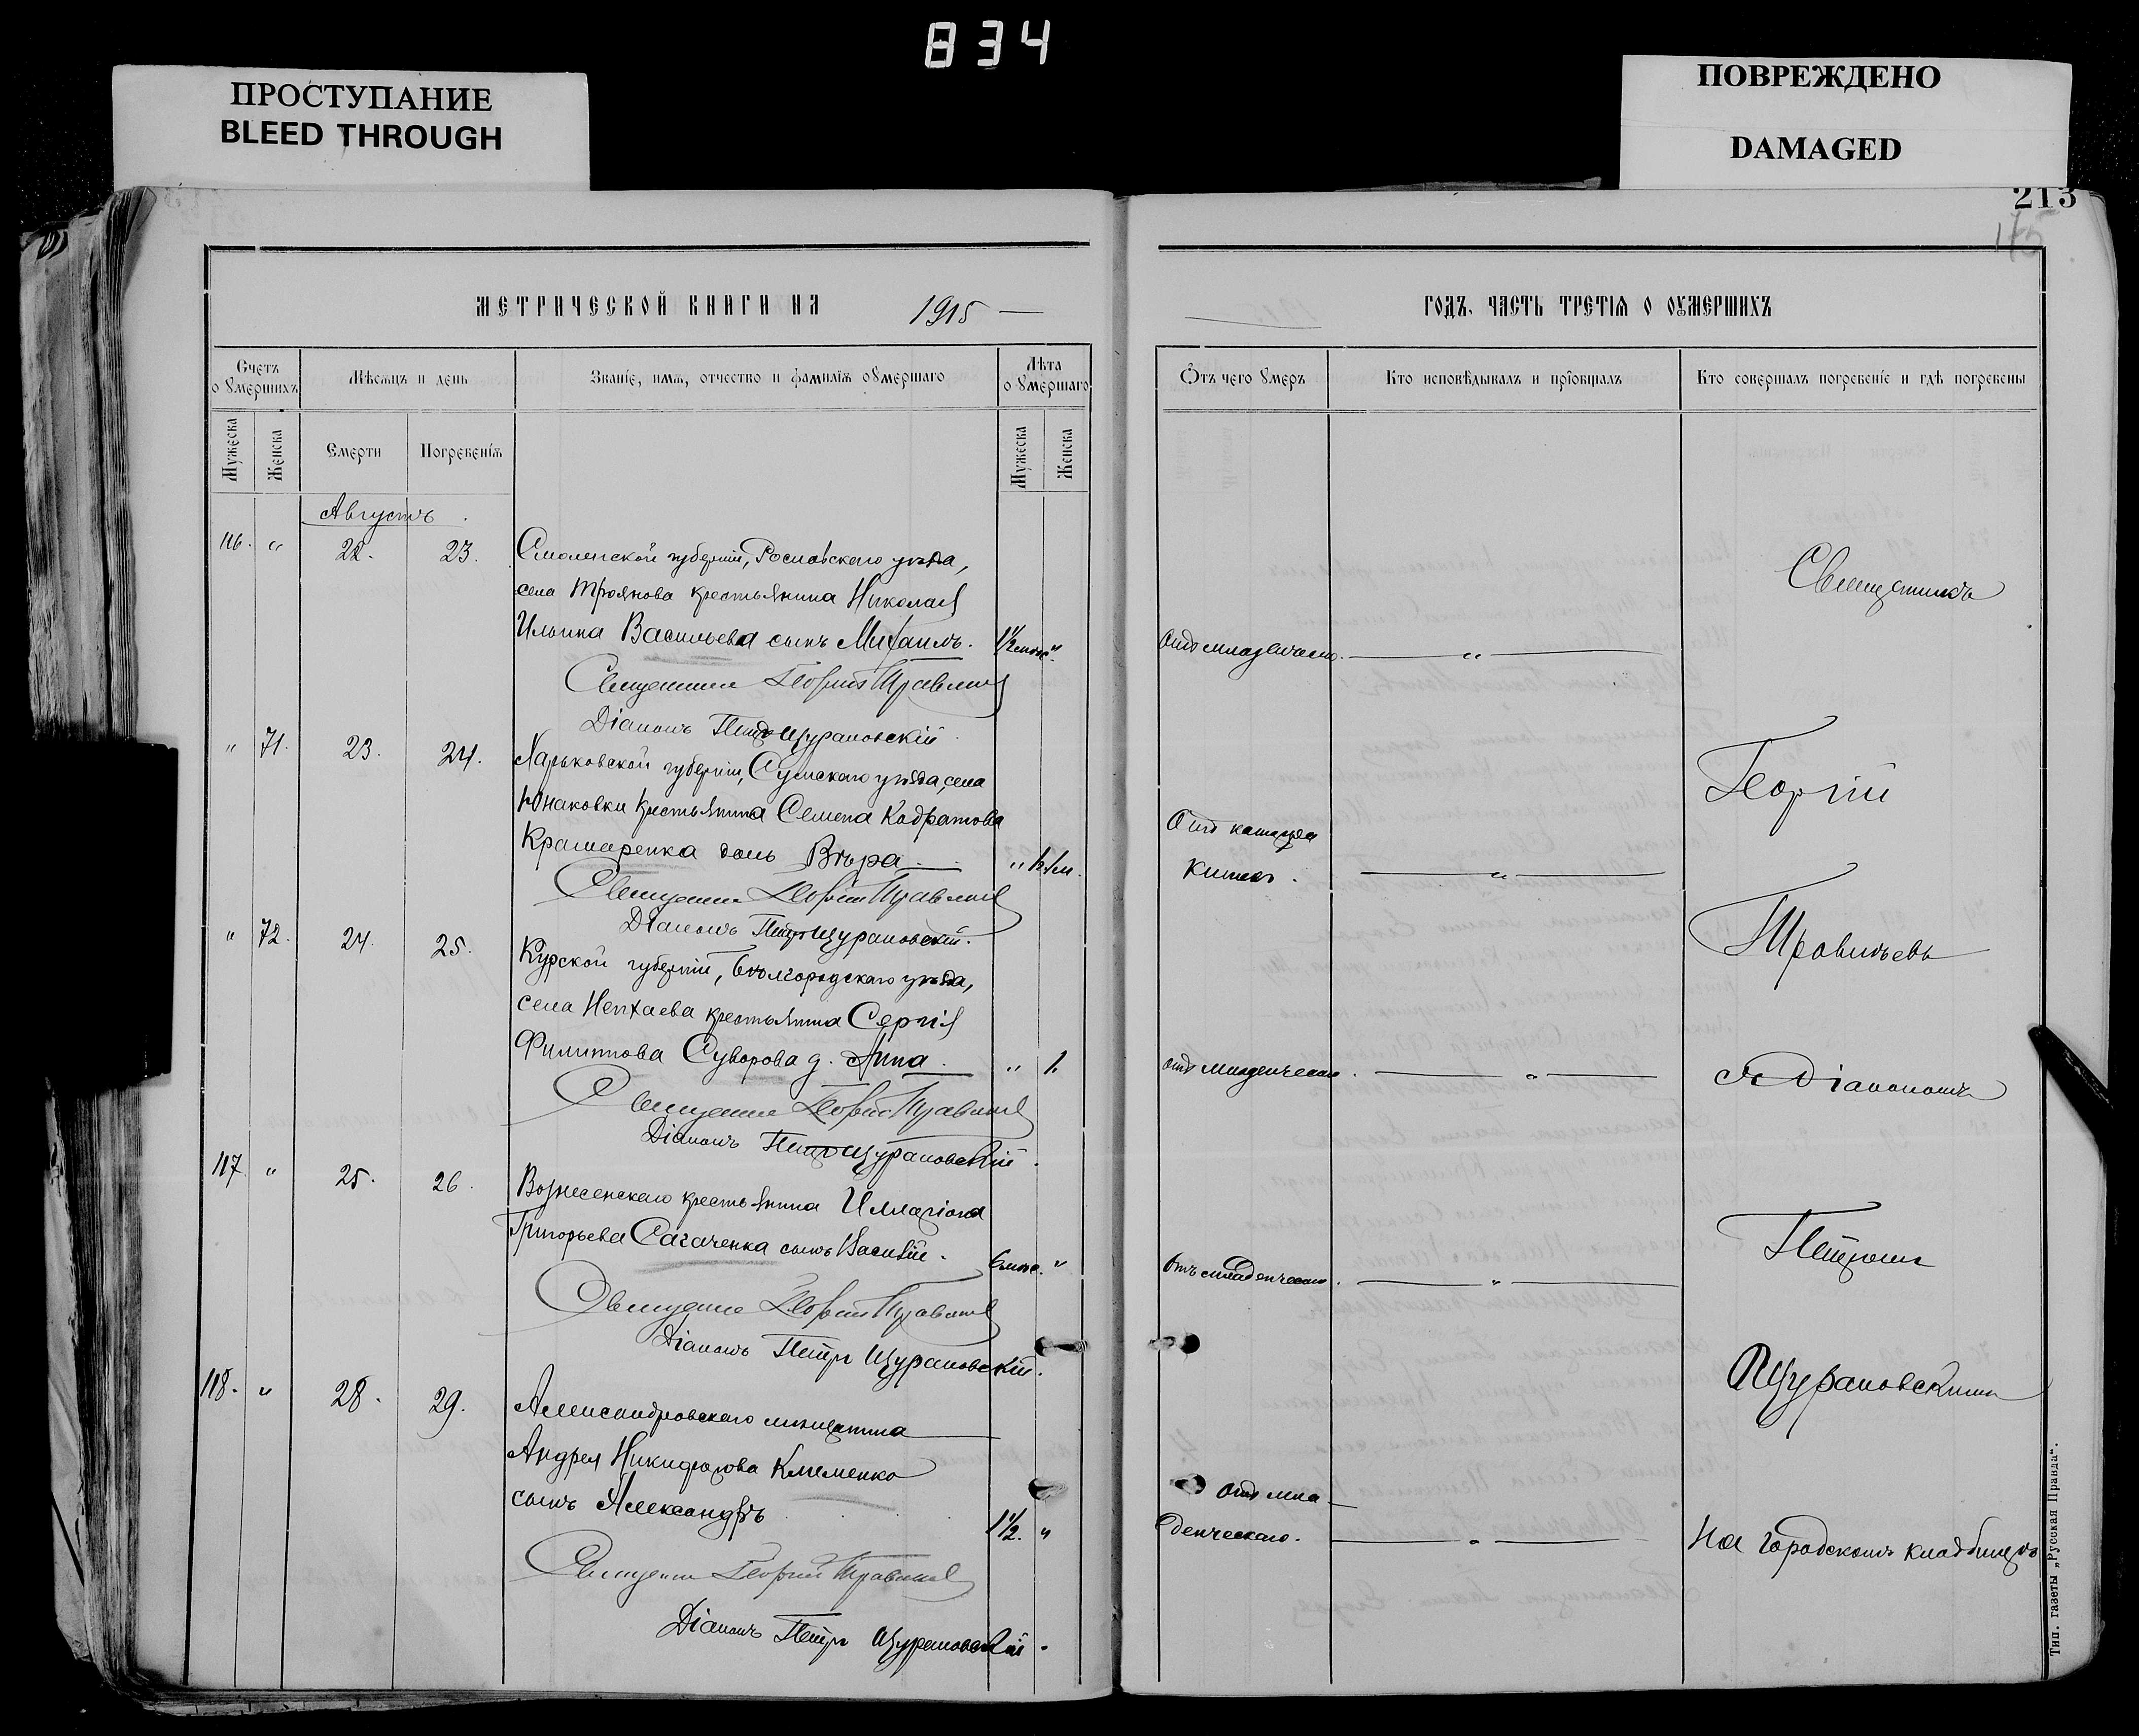 834
ПРОСТУПАНИЕ
BLEED THROUGH
ПОВРЕЖДЕНО
DAMAGED
213
МЕТРИЧЕСКОЙ КНИГИ НА 1915
ГОДЪ, ЧАСТЬ ТРЕТІЯ О ОУМЕРШИХЪ
Счетъ о умершихъ
Мѣсяцъ и день
Званіе, имя, отчество и фамилія оумершаго
Лѣта оумершаго
Отъ чего умеръ
Кто исповѣдывалъ и пріобщалъ
Кто совершалъ погребеніе и гдѣ погребены
Мужеска
Женска
Смерти
Погребенія
Мужеска
Женска
Августъ
116. " 22. 23. Смоленской губерніи, Рославскаго уѣзда,
села Троянова крестьянина Николая
Ильина Васильева сынъ Михаилъ. 1½ мѣс. "
отъ младенческ. "
Священникъ
Священникъ Георгій
Діаконъ Петръ Щурановскій
" 71. 23. 24. Харьковской губерніи, Сумскаго уѣзда, села
Юнаковки крестьянина Семена Кодратова
Крамаренка дочь Вѣра "
Отъ катарра
кишекъ. "
Георгій
Священникъ Георгій
Діаконъ Петръ Щурановскій.
" 72. 24. 25. Курской губерніи, Бѣлгородскаго уѣзда,
села Непхаева крестьянина Сергія
Филиппова Суворова д. Анна. " 1.
отъ младенческаго. "
съ Діакономъ
Священникъ Георгій
Діаконъ Петръ Щурановскій.
117. " 25. 26. Вознесенскаго крестьянина Илларіона
Григорьева Сагаченка сынъ Василій. 6 мѣс. "
Отъ младенческаго. "
Петромъ
Священникъ Георгій
Діаконъ Петръ Щурановскій.
Щурановскимъ
118. " 28. 29. Александровскаго мѣщанина
Андрея Никифорова Клименко
сынъ Александръ 1½. "
отъ мла-
денческаго. "
На городскомъ кладбищѣ
Священникъ Георгій
Діаконъ Петръ Щурановскій.
Тип. газеты „Русская Правда".